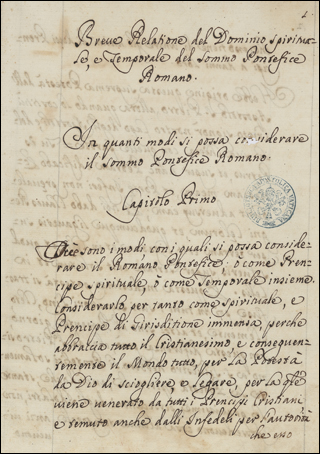 Breve Relatione del Dominio spiritua-
le, e Temporale del sommo Pontefice
Romano.
In quanti modi si possa considerare
il sommo Pontefice Romano.
Capitolo Primo
sono i modi con i quali si possa conside-
rare il Romano Pontefice: ò come Pren-
cipe spirituale, ò come Temporale insieme.
Considerarlo per tanto come spirituale, e
Prencipe di Girisditione immensa, perche
abbraccia tutto il Cristianesimo, e conseguen-
temente il Mondo tutto, per la Potestà
da Dio di sciogliere e legare, per la qle
viene venerato da tutti i Prencipi Cristiani
e temuto anche dalli Infedeli per l'autorità
che esso